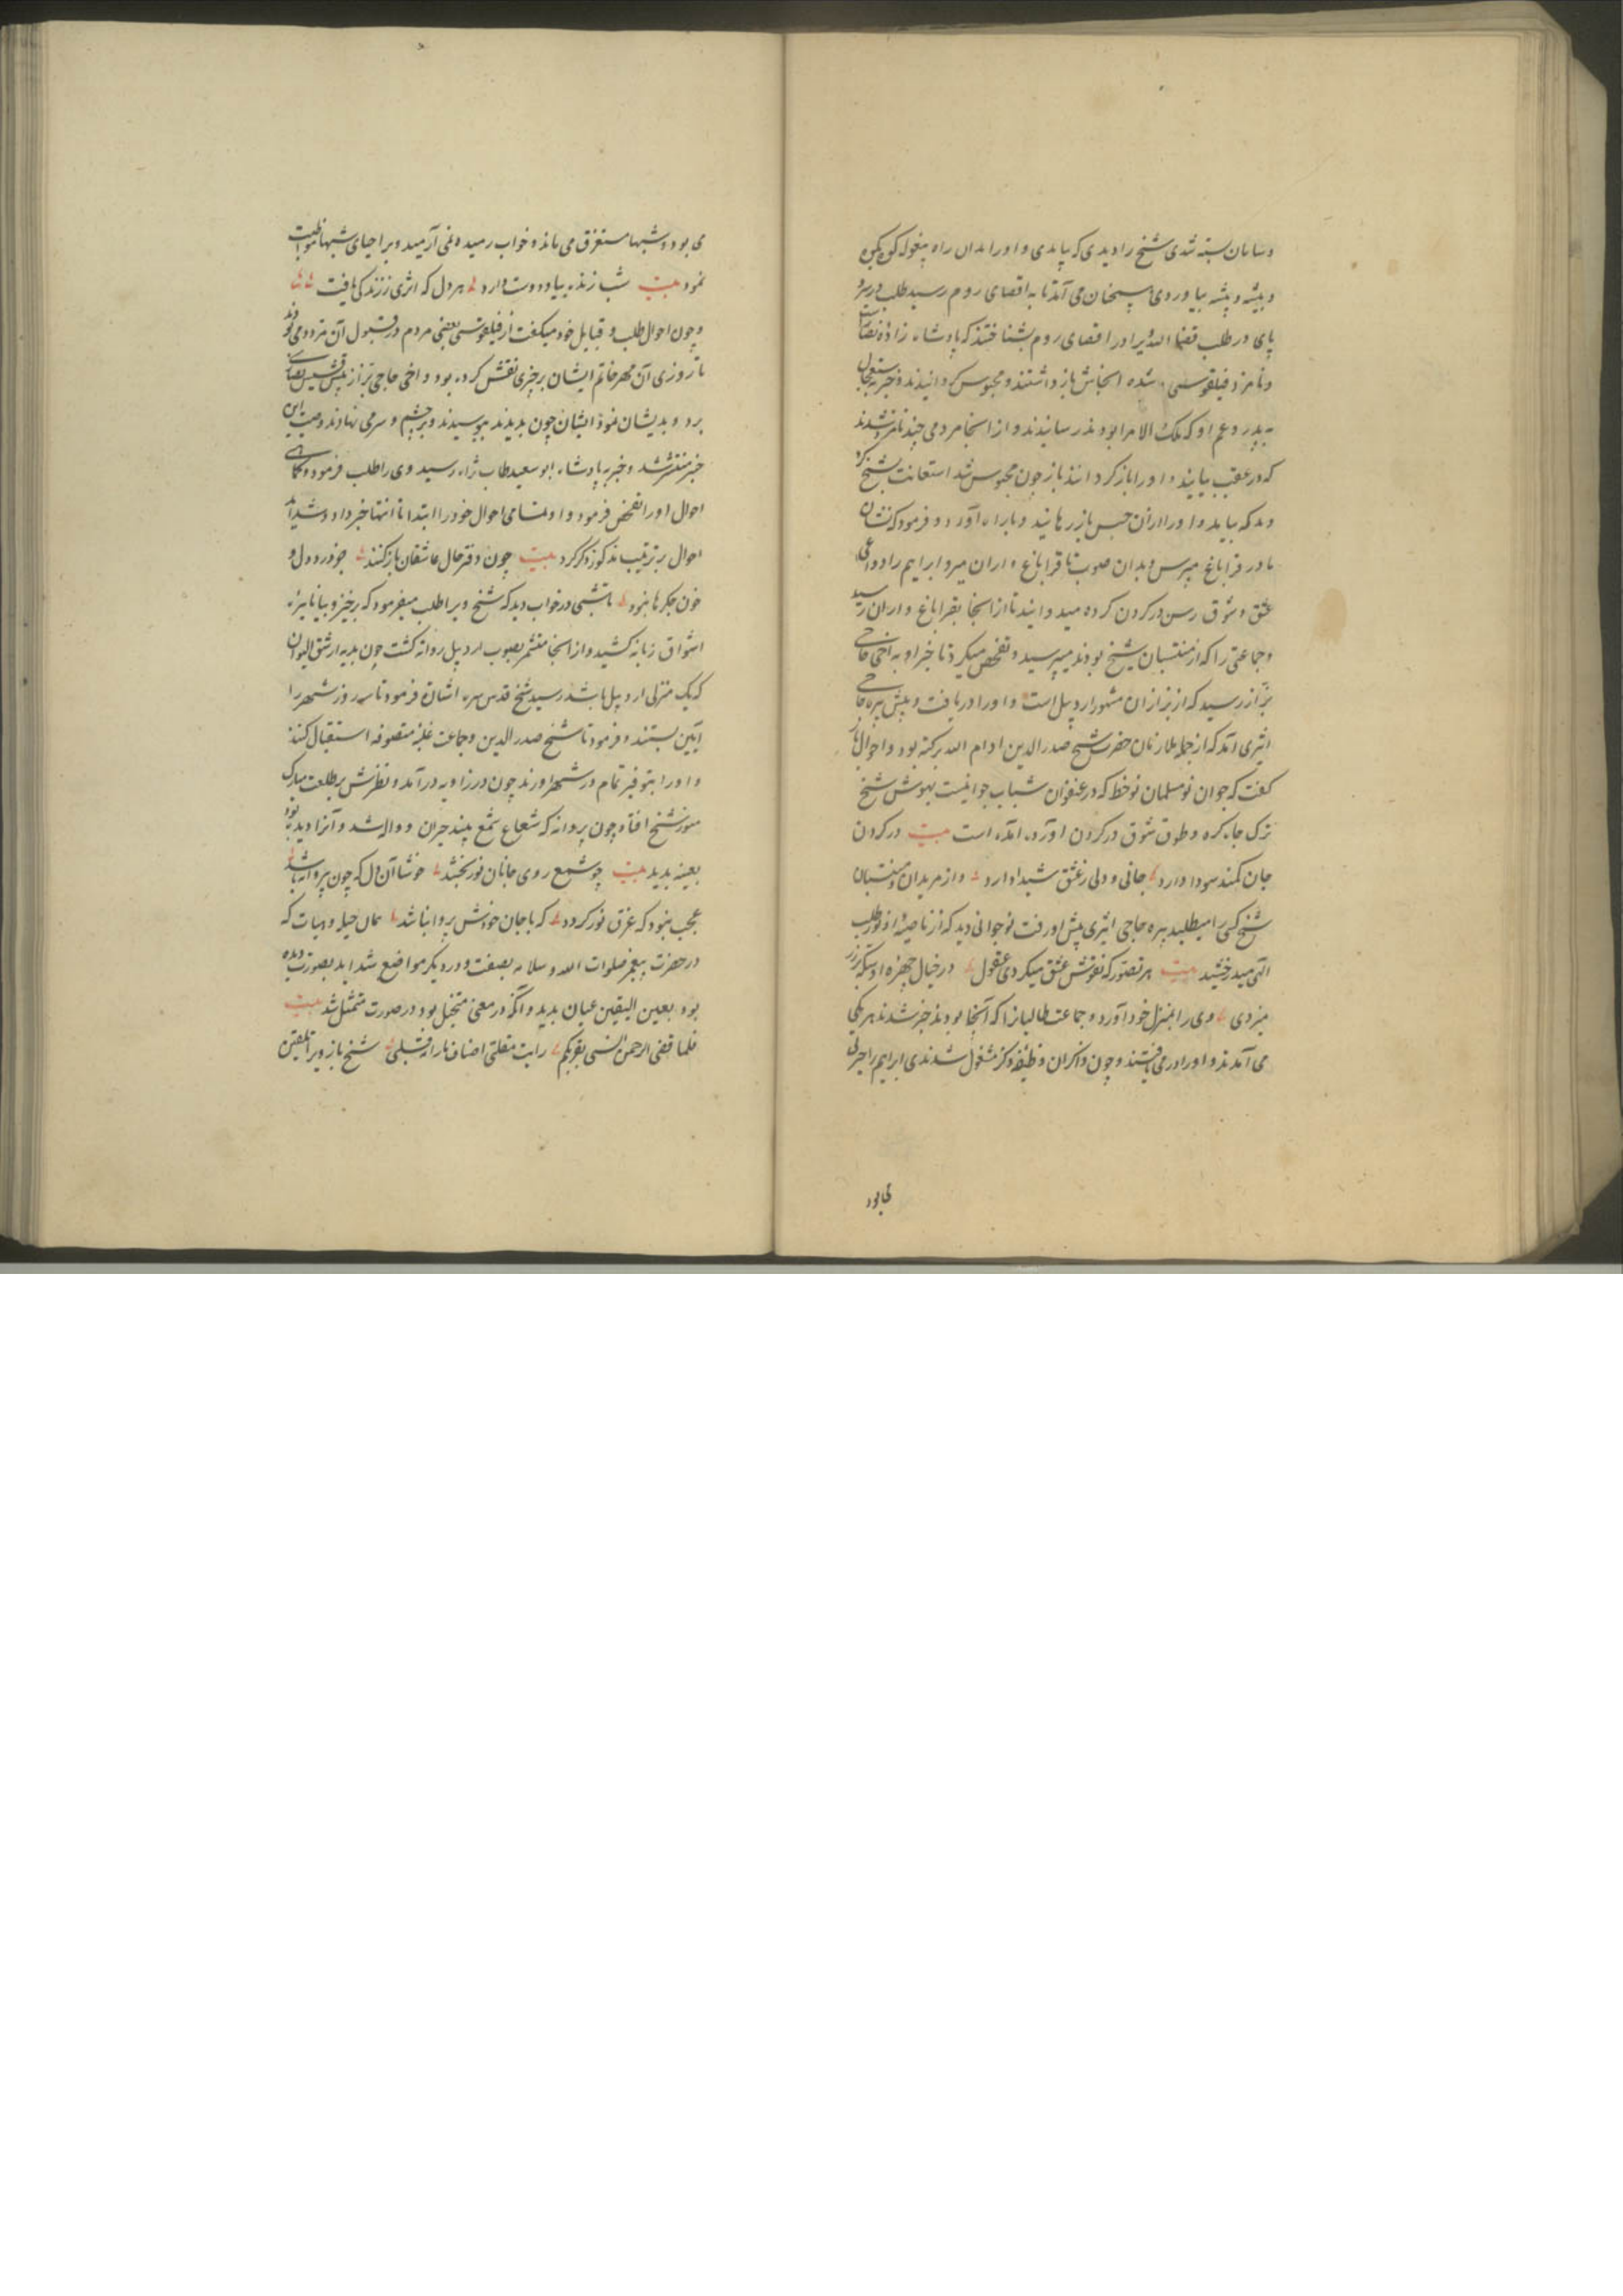 و سامان بسته شدی شیخ را دیدی که پایدی و او را بدان راه پیغوله کوه بکوه
و بیشه و بیشه بیاوردی همچنان می آمد تا به اقصای روم رسید طلب در سر و
پای در طلب قضا الله تیرا در اقصای روم بشناختند که پادشاه زاده نصار
و نامزد فیلقوسی شده انجاش باز داشتند و محبوس کردانیدند و خبر به
به پدر و عم او که ملک الامرا بود در رسانیدند و از انجا مردمی چند نامزد شدند
که در عقب بیایند و او را باز کردانند باز چون محبوس شد استعانت بشیخ کرد
دید که بیاید و او را از ان حبس باز رهانید و با راه آورد و فرمود که نشان
ما در قراباغ بپرس و بدان صوب تا قراباغ و اران میرو ابراهیم را دواعی
عشق و شوق رسن در کردن کرده میدوانید تا از انجا بقراباغ و اران رسید
و جماعتی را که از منتسبان شیخ بودند میپرسید و تفحص میکرد تا خبر او به اخی حاجی
بزاز رسید که از بزازان مشهور اردبیل است و او را دریافت و پیش پیره حاجی
اثیری آمد که از جمله ملازمان حضرت شیخ صدر الدین ادام الله برکته بود و احوال باز
کفت که جوان نو مسلمان نوخط که در عنفوان شباب جوانیست بهوش شیخ
ترک جاه کرده و طوق شوق در کردن آورده آمده است بیت در کردن
جان کمند سودا دارد جانی و دلی ز عشق شیدا دارد و از مریدان و منتسبان
شیخ کسی را میطلبید پیره حاجی اثیری پیش او رفت نوجوانی دید که از ناصیه او نور طلب
الهی میدرخشید بیت هر تصور که نقوش عشق میکردی عقول در خیال چهره او سکه بر زر
میزدی وی را بمنزل خود آورد و جماعت طالبان را که آنجا بودند خبر شدند هر یکی
می آمدند و او را در می یافتند و چون ذاکران وظیفه ذکر مشغول شدندی ابراهیم را حیرتی
می بود
می بود و شبها مستغرق می ماند و خواب رمیده و نمی آرمید و بر احیای شبها مواظبت
نمود بیت شب زنده بیاد دوست دارد هر دل که اثری ز زندکی یافت
و چون احوال طلب و قبایل خود میکفت از فیلقوسی بعضی مردم در قبول آن متردد می بودند
تا روزی آن مهر خاتم ایشان بر چیزی نقش کرده بود و اخی حاجی بزاز پیش قسیس نصاری
برد و بدیشان نمود ایشان چون بدیدند ببوسیدند و بر چشم و سر می نهادند و صیت این
خبر منتشر شد و خبر به پادشاه ابو سعید طاب ثراه رسید وی را طلب فرمود و کماهی
احوال او را تفحص فرمود و او تمامی احوال خود را از ابتدا تا انتها خبر داد و شداید
احوال بر ترتیب مذکور ذکر کرد بیت چون دفتر حال عاشقان باز کنند جز درد دل و
خون جکرها نبود تا شبی در خواب دید که شیخ ویرا طلب میفرمود که برخیز و بیا نایره
اشواق زبانه کشید و از انجا متشمر بصوب اردبیل روانه کشت چون بدیه ارشق الیوان
که یک منزلی اردبیل باشد رسید شیخ قدس سره اشارت فرمود تا سه روز شهر را
آیین بستند و فرمود تا شیخ صدر الدین و جماعت غلبه متصوفه استقبال کنند
و او را بتوقیر تمام در شهر آورند چون در زاویه در آمد و نظرش بر طلعت مبارک
منور شیخ افتاد چون پروانه که شعاع شمع بیند حیران و واله شد و آنرا دیده بود
بعینه بدید بیت چو شمع روی جانان نور بخشد خوشا آن دل که چون پروانه باشد
عجب نبود که غرق نور کردد که با جان خودش پروا نباشد همان حیله و هیات که
در حضرت پیغمبر صلوات الله و سلامه بصفت و در دیکر مواضع شداید بصورت دیده
بود بعین الیقین عیان بدید و آنکه در معنی متخیل بود در صورت متمثل شد بیت
فلما قضی الرحمن انسی بقربکم رایت مقلتی اضعاف ما رآه قلبی شیخ باز ویرا تلقین